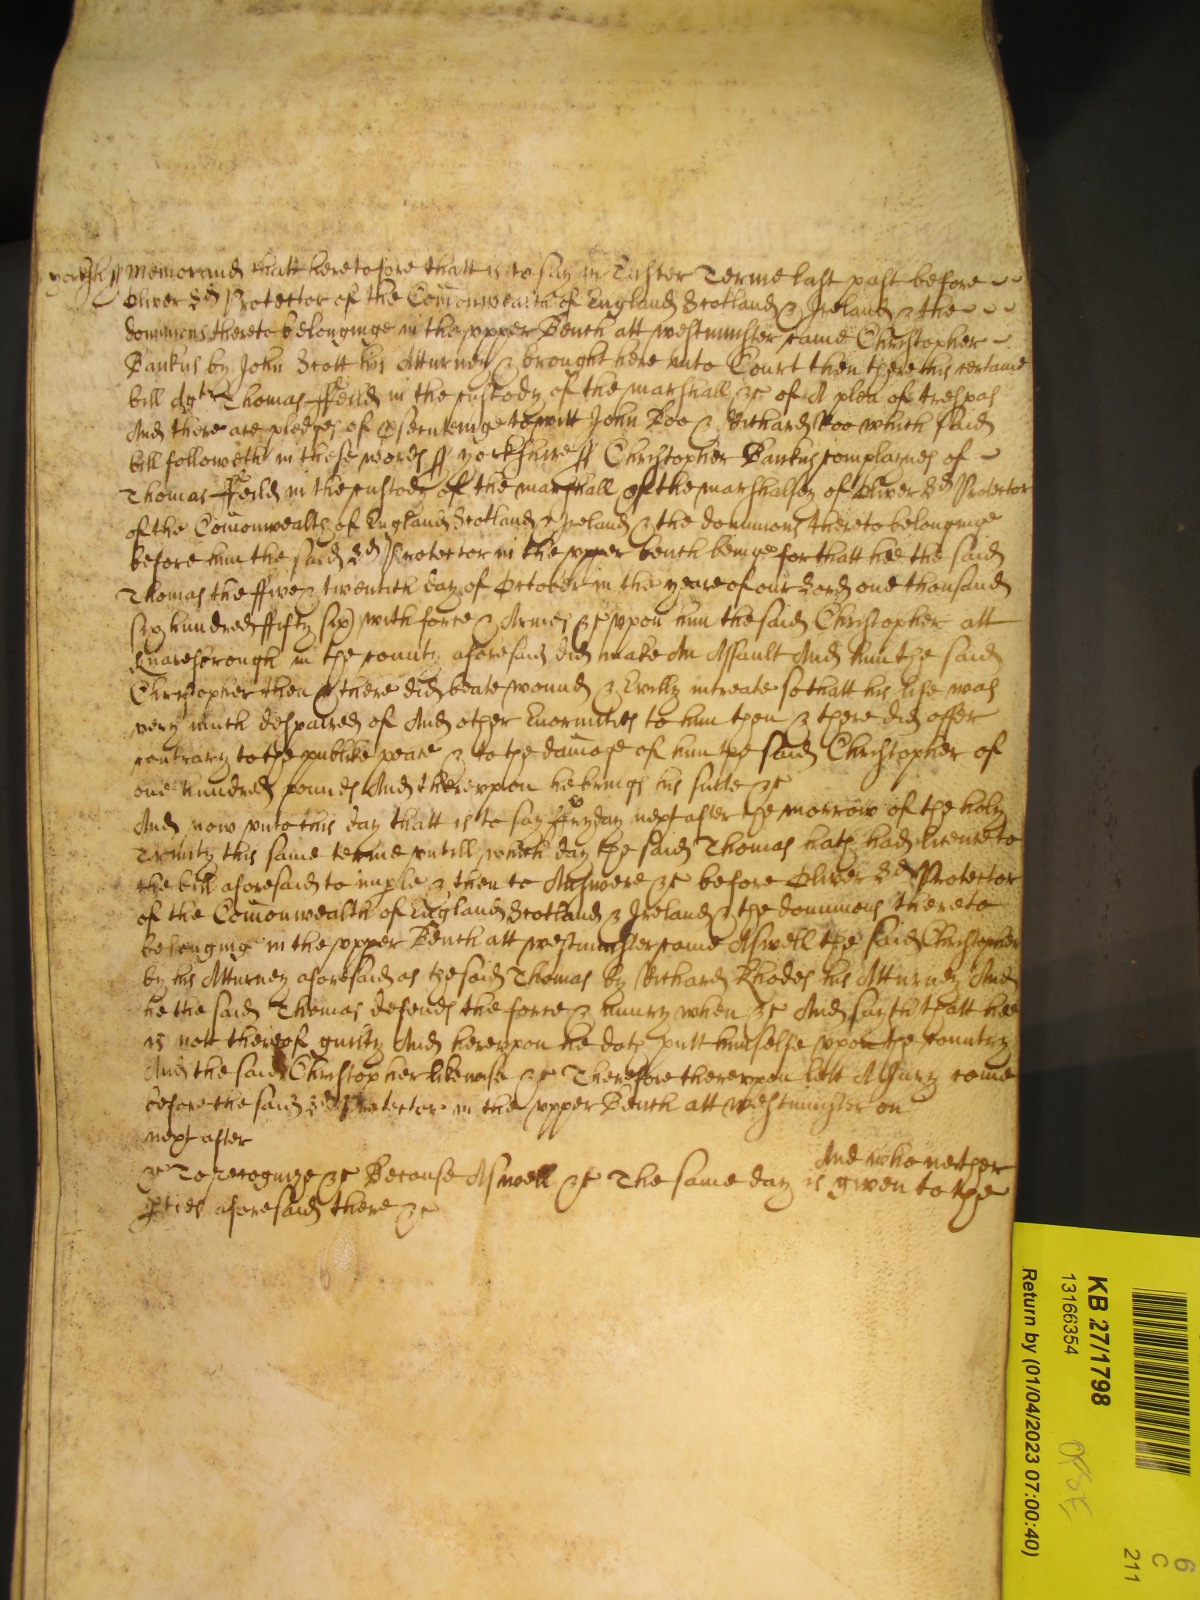 yorksh ss Memorand thatt heretofore thatt is to say in Easter Terme last past before
Oliver Ld Protector of the Comonwealth of England Scotland & Ireland & the
dominions thereto belonginge in the upper Bench att Westminster came Christopher
Bankus by John Scott his Atturney & brought here into Court then there his certaine
bill Agt Thomas ffeild in the custody of the marshall &c of A plea of trespas
And there are pledges of Prsecutinge to witt John Doe & Richard Roe which said
bill followeth in these words ss yorkshire ss Christopher Bankus complaines of
Thomas ffeild in the custody of the marshall of the marshalsey of Oliver Ld Protector
of the Comonwealth of England Scotland & Ireland & the dominions thereto belonginge
before him the said Ld Protector in the upper bench beinge for thatt hee the said
Thomas the ffive & twentieth day of October in the yeare of our Lord one thousand
six hundred ffifty six with force & Armes &c upon him the said Christopher att
Knaresbrough in the county aforesaid did make An Assault And him the said
Christopher then & there did beate wound & Evilly intreate so thatt his life was
very much despaired of And other Enormities to him then & there did offer
contrary to the publike peace & to the damage of him the said Christopher of
one hundred pounds And thereupon he brings his suite &c
And now unto this day thatt is to say ffryday next after the morrow of the holy
Trinity this same terme untill which day the said Thomas hath had licence to
the bill aforesaid to imple & then to Answere &c before Oliver Ld Protector
of the Comonwealth of England Scotland & Ireland & the dominions thereto
belonging in the upper Bench att Westminster came Aswell the said Christopher
by his Atturney aforesaid as the said Thomas by Richard Rhodes his Atturney And
he the said Thomas defends the force & iniury when &c And saith thatt hee
is nott thereof guilty And hereupon he doth putt himselfe upon the country
And the said Christopher likewise &c Therefore thereupon lett A Jury come
before the said Ld Protector in the upper Bench att Westminster on
next after And who neither
&c To recognize &c Because Aswell &c The same day is given to the
pties aforesaid there &c
KB 27/1798
13166354
Return by (01/04/2023 07:00:40)
6
C
211